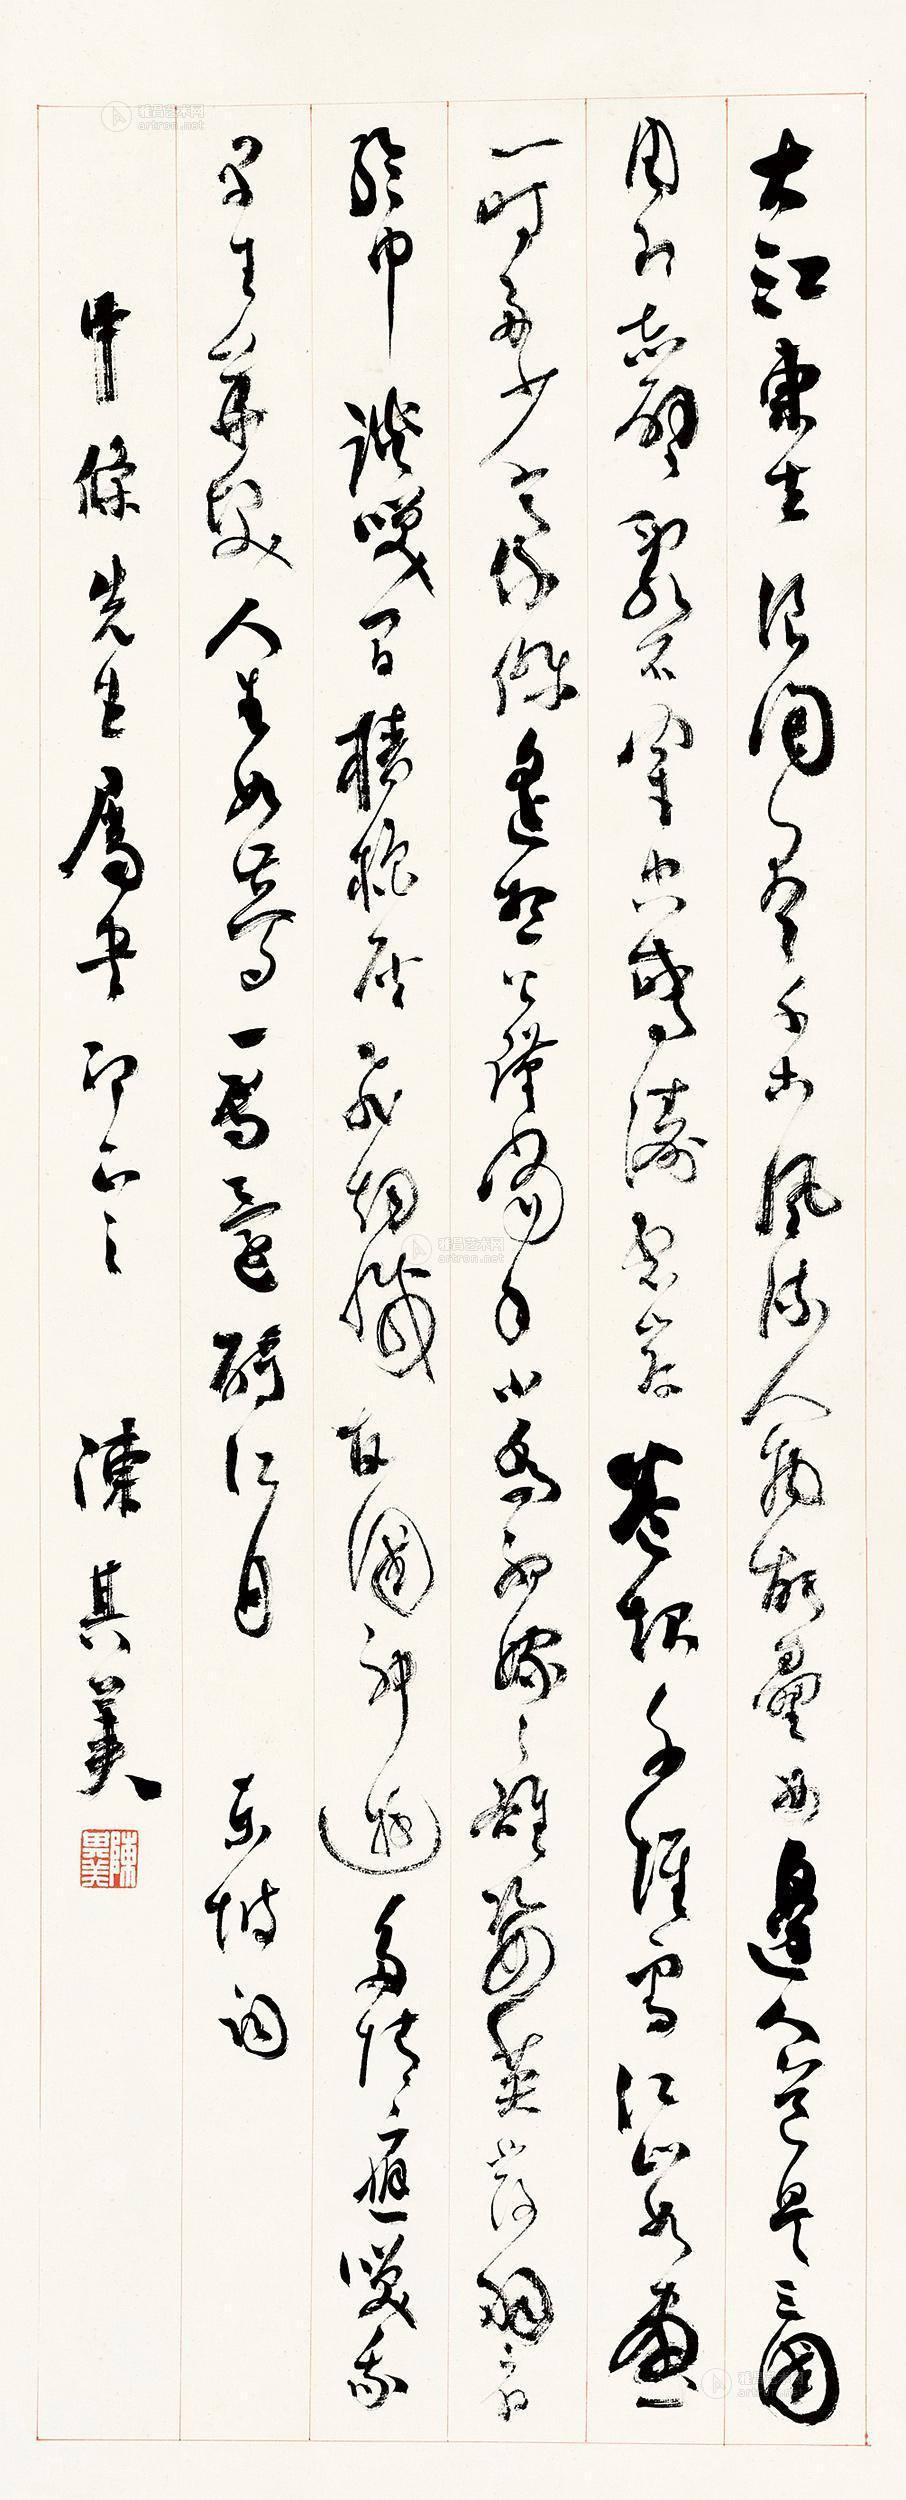 大江東去浪淘盡千古風流人物故壘西邊人道是三國
周郎赤壁亂石穿空驚濤裂岸卷起千堆雪江山如畫
一時多少豪傑遙想公瑾當年小喬初嫁了雄姿英發羽扇
綸巾談笑間檣櫓灰飛煙滅故國神遊多情應笑我
早生華髮人生如夢一尊還酹江月 東坡詞
中條先生屬書即正之 陳其美
陳其美
雅昌艺术网
artron.net
雅昌艺术网
artron.net